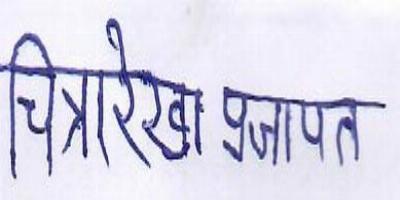 चित्रारेखा प्रजापत